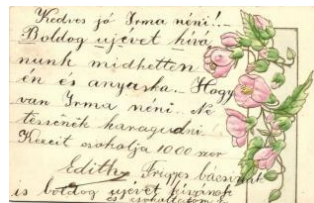 Kedves jó Irma néni!-
Boldog ujévet kivá
nunk midhetten
én es anyaska. Hogy
van Irma néni. Ne
tessenek haragudni
Kezeit csokolja 1000 szer
Edith, Frigyes bácsinak
is boldog ujévet kivánok
és csokoltatom